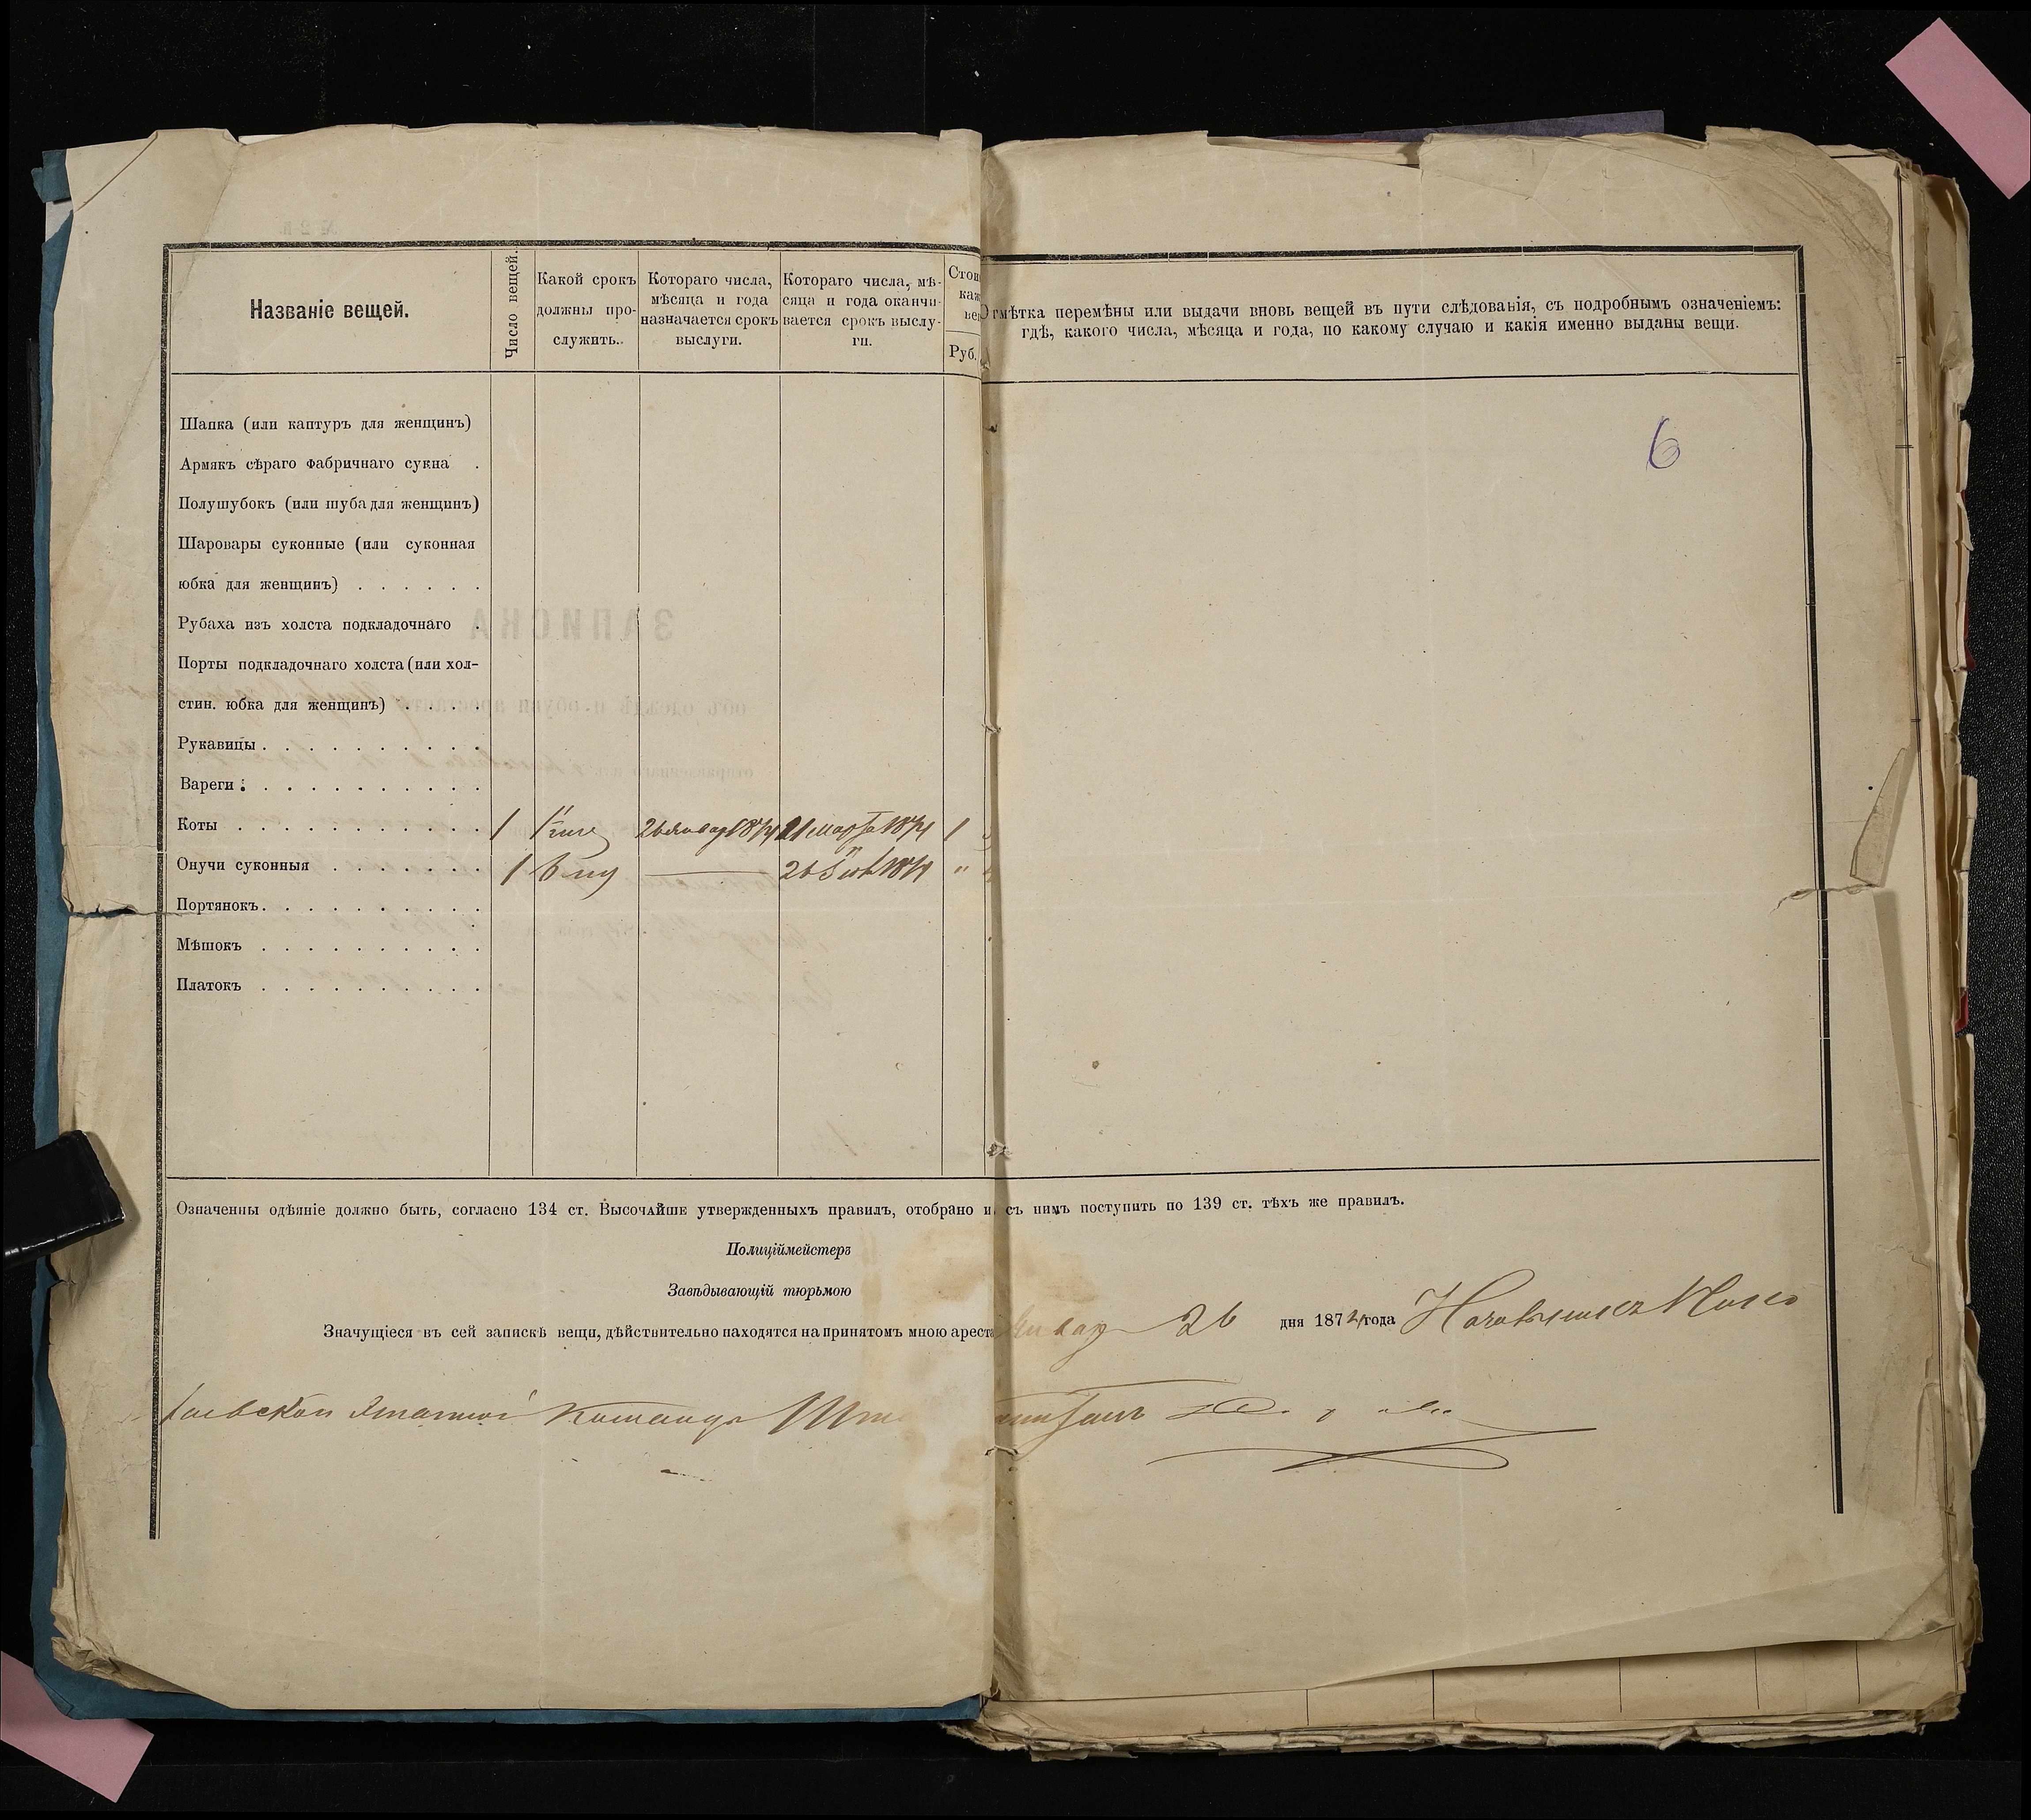 Названіе вещей.
Число вещей.
Какой срокъ
должны про-
служить.
Котораго числа,
мѣсяца и года
назначается срокъ
выслуги.
Котораго числа, мѣ-
сяца и года оканчи-
вается срокъ выслу-
ги.
Стои
каж
вещ
Руб.
Отмѣтка перемѣны или выдачи вновь вещей въ пути слѣдованія, съ подробнымъ означеніемъ:
гдѣ, какого числа, мѣсяца и года, по какому случаю и какія именно выданы вещи.
6
Шапка (или каптуръ для женщинъ)
Армякъ сѣраго фабричнаго сукна .
Полушубокъ (или шуба для женщинъ)
Шаровары суконные (или суконная
юбка для женщинъ) . . . . . .
Рубаха изъ холста подкладочнаго .
Порты подкладочнаго холста (или хол-
стин. юбка для женщинъ) . . . .
Рукавицы . . . . . . . . . .
Вареги . . . . . . . . . .
Коты . . . . . . . . . . . 1 26 Январ 1874 21 Марта 1874 1
Онучи суконныя . . . . . . . 1 6 — 26 1874 "
Портянокъ . . . . . . . . . .
Мѣшокъ . . . . . . . . . .
Платокъ . . . . . . . . . .
Означенны одѣяніе должно быть, согласно 134 ст. Высочайше утвержденныхъ правилъ, отобрано и съ нимъ поступить по 139 ст. тѣхъ же правилъ.
Полиціймейстеръ
Завѣдывающій тюрьмою
Значущіеся въ сей запискѣ вещи, дѣйствительно находятся на принятомъ мною ареста Январ 26 дня 1874 года Начальникъ
Этапной Команды